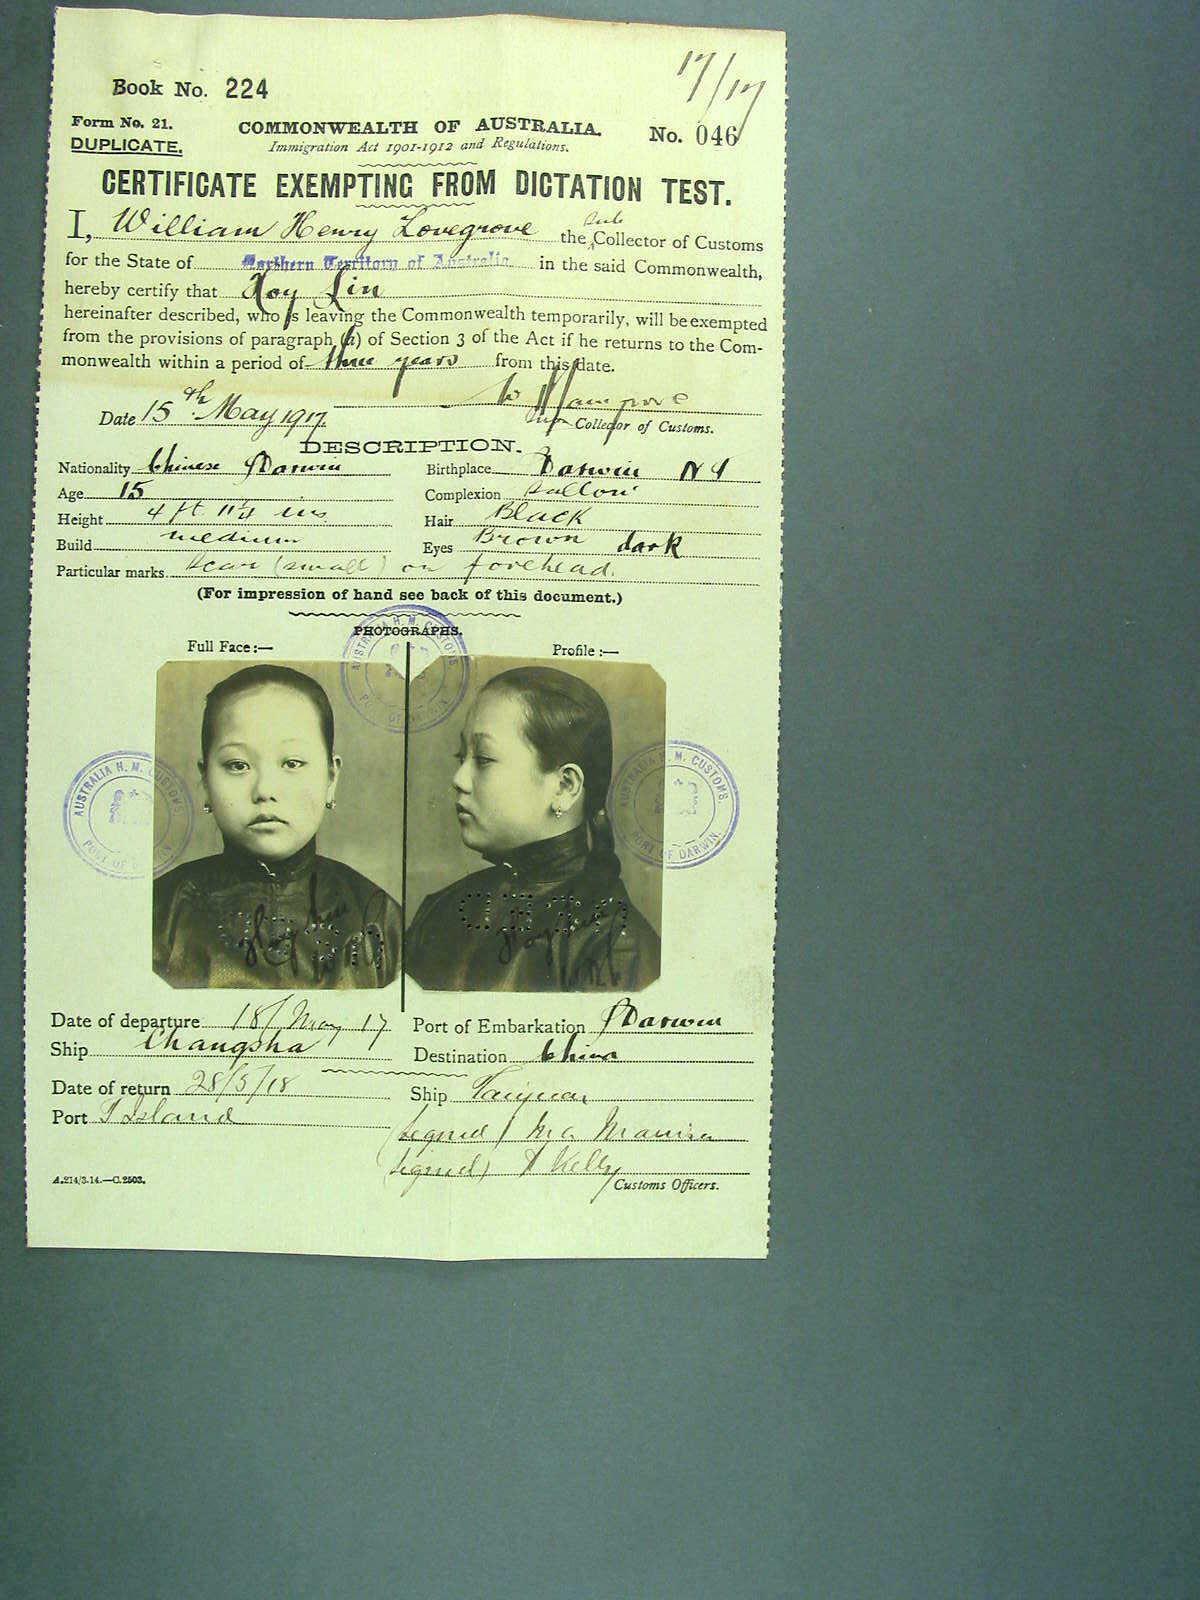 17/17
Book No. 224
Form No. 21.
DUPLICATE.
COMMONWEALTH OF AUSTRALIA.
No. 046
Immigration Act 1901-1912 and Regulations.
CERTIFICATE EXEMPTING FROM DICTATION TEST.
I, William Henry Lovegrove the Sub Collector of Customs
for the State of Northern Territory of Australia in the said Commonwealth,
hereby certify that Hoy Lin
hereinafter described, who is leaving the Commonwealth temporarily, will be exempted
from the provisions of paragraph (a) of Section 3 of the Act if he returns to the Com-
monwealth within a period of three years from this date.
Date 15th May 1917.
Collector of Customs.
DESCRIPTION.
Nationality Chinese Darwin Birthplace Darwin NT
Age 15 Complexion Sallow
Height 4 ft 11¼ ins Hair Black
Build medium Eyes Brown dark
Particular marks scar (small) on forehead.
(For impression of hand see back of this document.)
PHOTOGRAPHS.
Full Face:— Profile:—
AUSTRALIA H. M. CUSTOMS.
PORT OF DARWIN
AUSTRALIA H. M. CUSTOMS.
PORT OF DARWIN
AUSTRALIA H. M. CUSTOMS.
PORT OF DARWIN.
Date of departure 18/May 17 Port of Embarkation Darwin
Ship Changsha Destination China
Date of return 28/5/18 Ship Taiyuan
Port T Island
(signed)
(signed) Kelly
Customs Officers.
A.214/3.14.—C.2503.